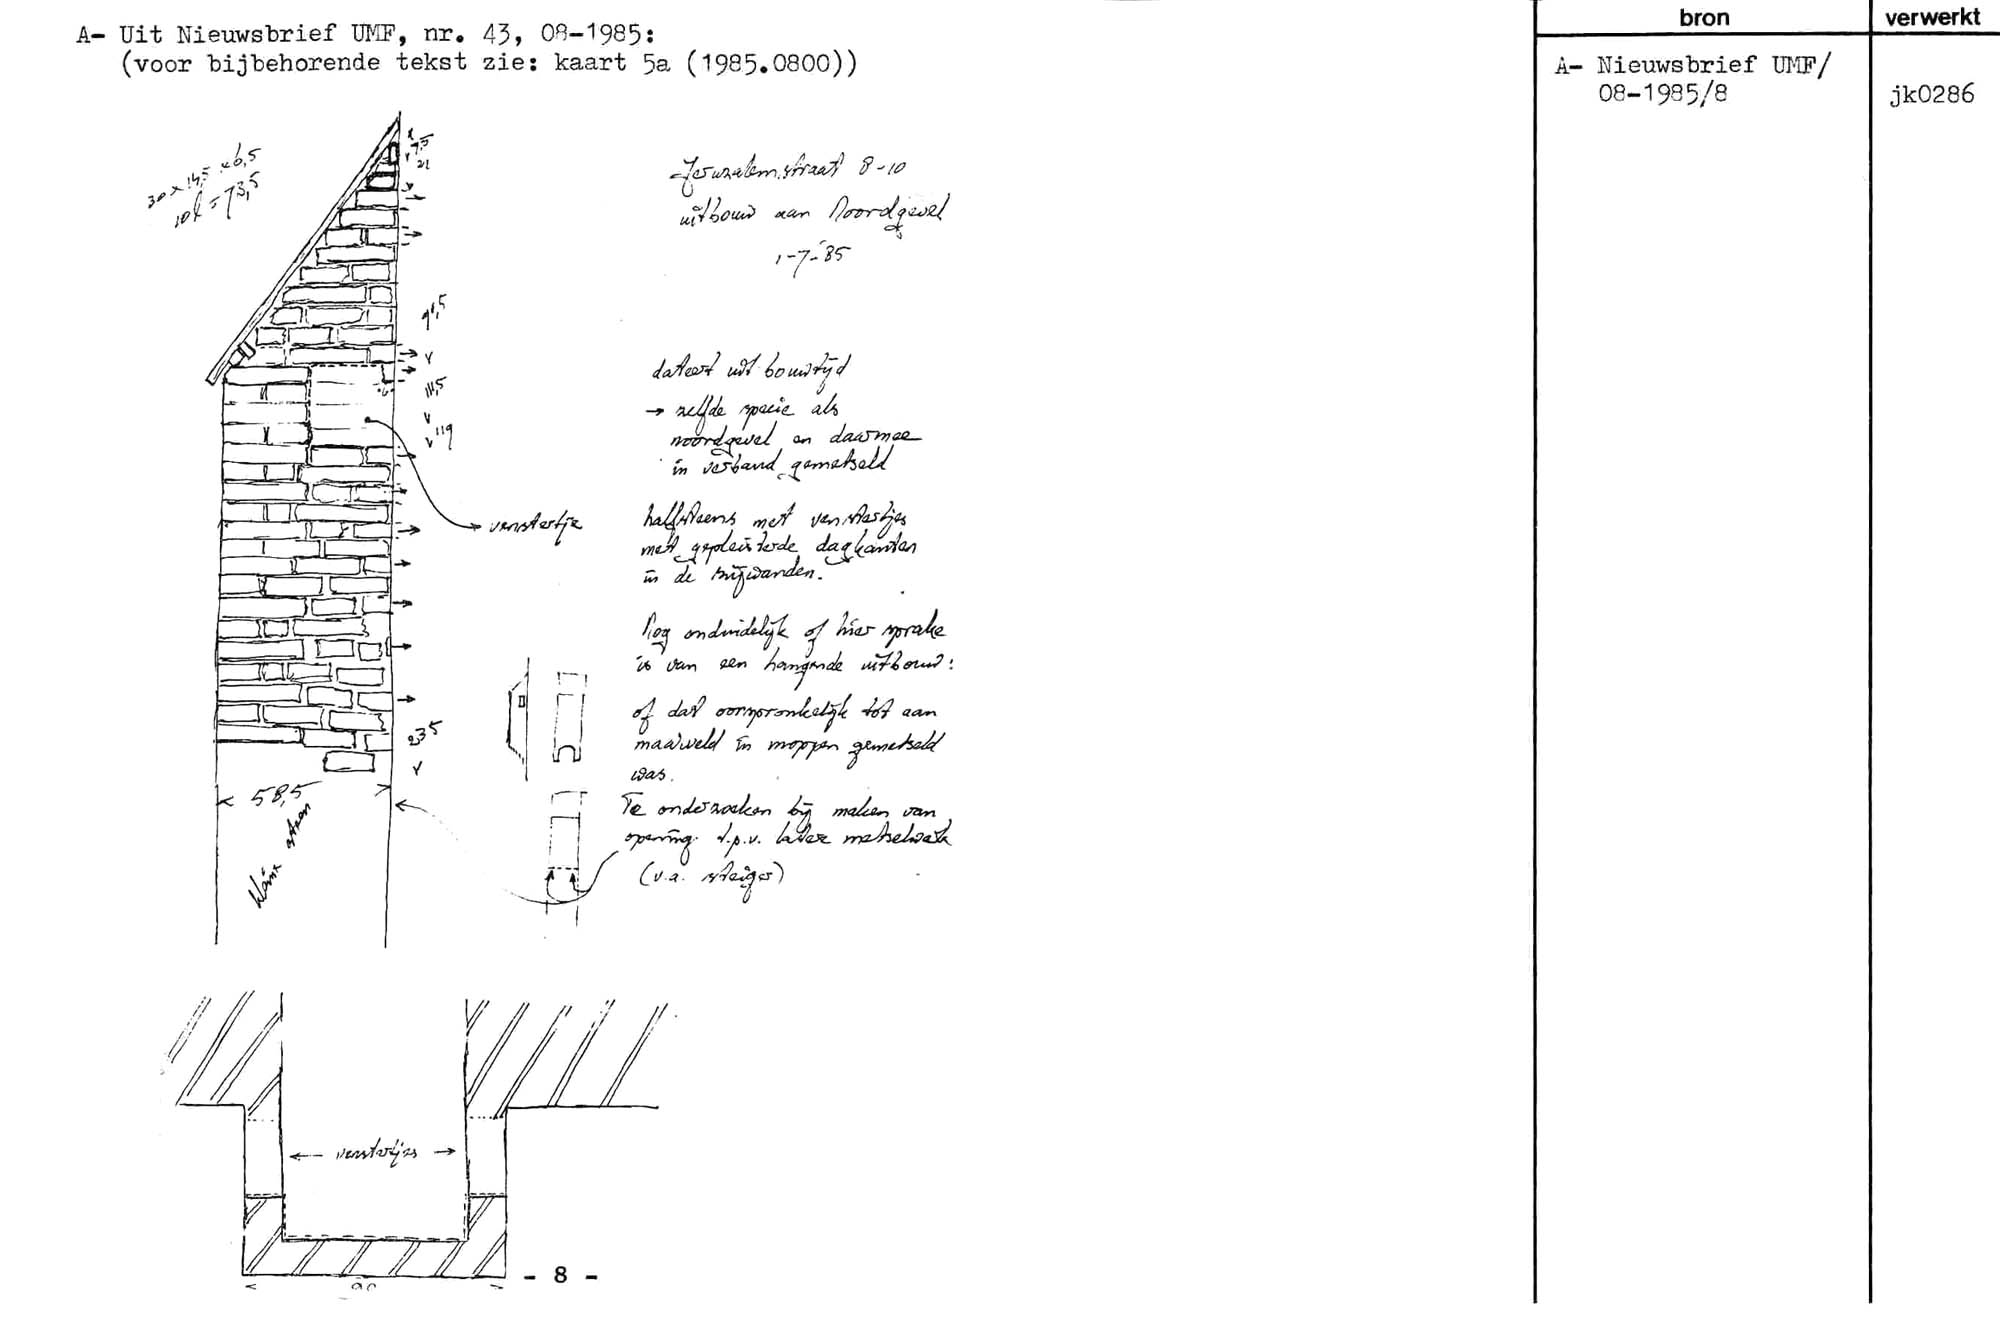 A- Uit Nieuwsbrief UMF, nr. 43, 08-1985:
(voor bijbehorende tekst zie: kaart 5a (1985.0800))
bron
verwerkt
A- Nieuwsbrief UMF/
08-1985/8
jk0286
30 x 14,5 x 6,5
10l = 73,5
7,5
21
91,5
11,5
119
235
58,5
klein steen
venstertje
Jeruzalemstraat 8-10
uitbouw aan Noordgevel
1-7-'85
dateert uit bouwtijd
→ zelfde specie als
noordgevel en daarmee
in verband gemetseld
halfsteens met venstertjes
met gepleisterde dagkanten
in de zijwanden.
Nog onduidelijk of hier sprake
is van een hangende uitbouw:
of dat oorspronkelijk tot aan
maaiveld in moppen gemetseld
was.
Te onderzoeken bij maken van
opening t.p.v. later metselwerk
(v.a. steiger)
venstertjes
- 8 -